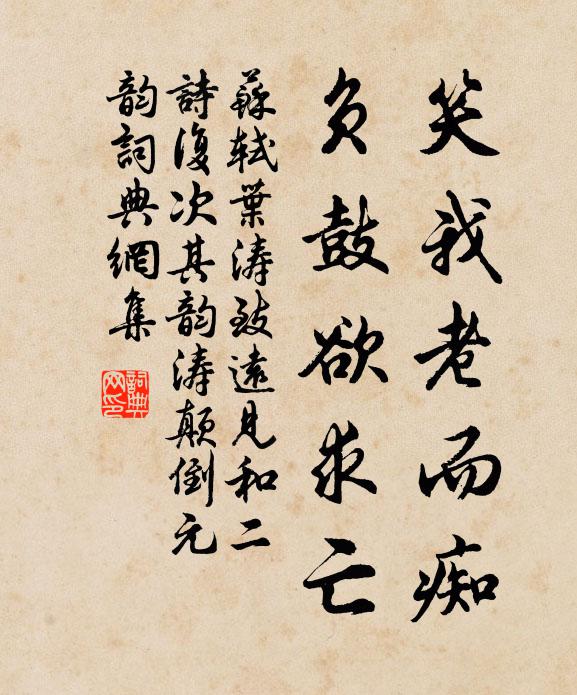 笑我老而痴
负鼓欲求亡
蘇軾葉濤致遠見和二
詩復次其韵濤颠倒元
韵詞典網集
詞典网印